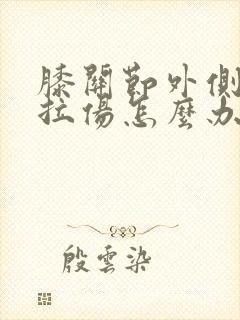 膝關節外側
拉傷怎麼办
殷雲染